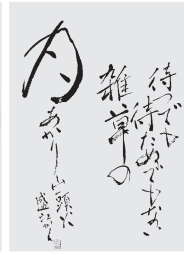 待つでも
待たぬでもない
雑草の
月
あかり 山頭火